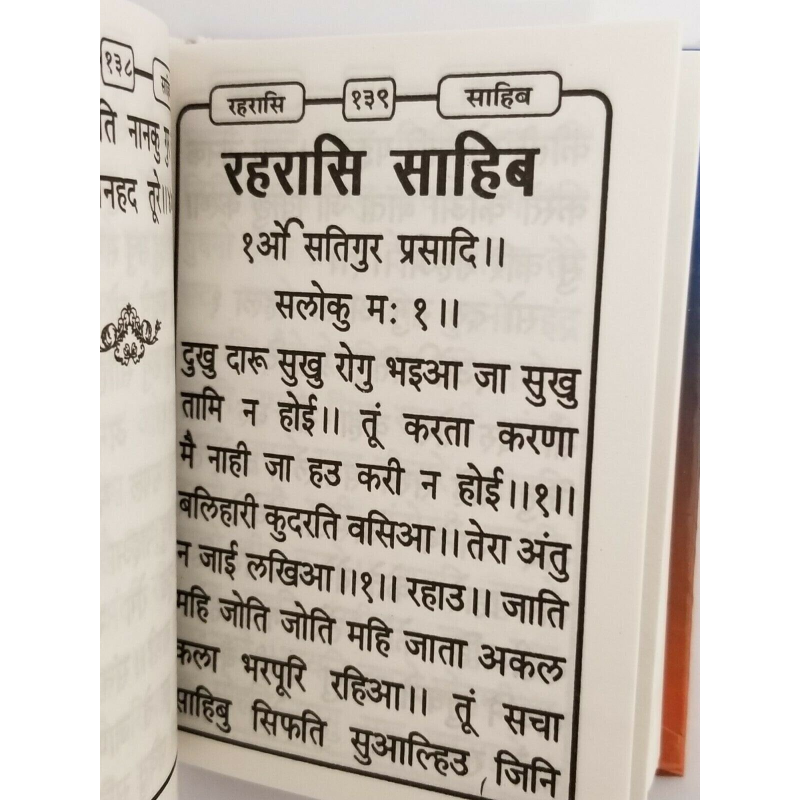 १३८
ति नानकु गु
नहद तूरे॥
रहरासि १३९ साहिब
रहरासि साहिब
१ओं सतिगुर प्रसादि।।
सलोकु मः १।।
दुखु दारू सुखु रोगु भइआ जा सुखु
तामि न होई।। तूं करता करणा
मै नाही जा हउ करी न होई।।१।।
बलिहारी कुदरति वसिआ।। तेरा अंतु
न जाई लखिआ।।१।। रहाउ।। जाति
महि जोति जोति महि जाता अकल
कला भरपूरि रहिआ।। तूं सचा
साहिबु सिफति सुआल्हिउ जिनि